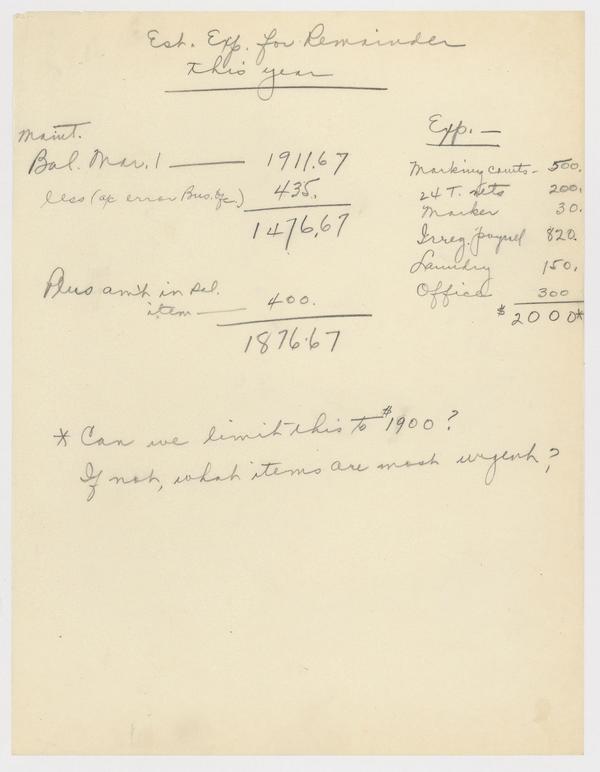 Est. Exp. for Remainder
this year
Maint.
Bal. Mar. 1 — 1911.67
less (ac error Bus. Ofc.) 435.
1476.67
Plus am't in Sal.
item — 400.
1876.67
Exp. —
Marking courts - 500.
24 T. nets 200.
Marker 30.
Irreg. payroll 820.
Laundry 150.
Office 300
$2000*
* Can we limit this to $1900?
If not, what items are most urgent?